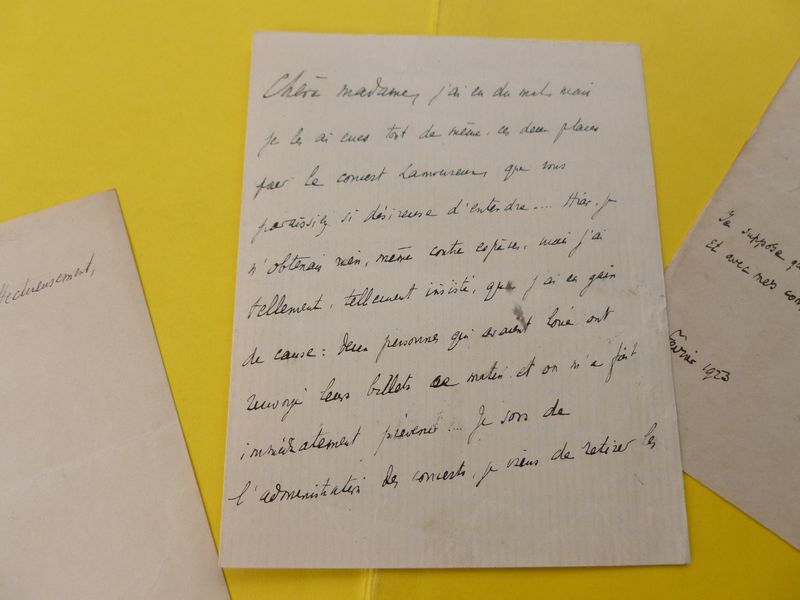 Chère madame, j'ai eu du mal, mais
je les ai eues tout de même, ces deux places
pour le concert Lamoureux, que vous
paraissiez si désireuse d'entendre.... Hier, je
n'obtenais rien, même contre espèces, mais j'ai
tellement, tellement insisté, que j'ai eu gain
de cause: deux personnes qui avaient loué ont
renvoyé leurs billets ce matin et on m'a fait
immédiatement prévenir... Je sors de
l'administration des concerts, je viens de retirer les
ffectueusement,
Je suppose qu
Et avec mes com
1923